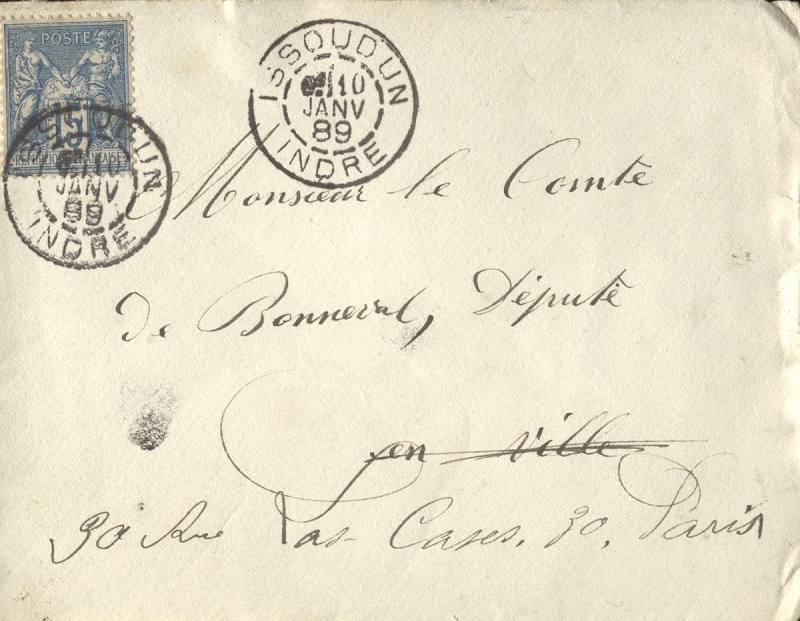 POSTE
15
REPUBLIQUE FRANÇAISE
ISSOUDUN
10
JANV
89
INDRE
ISSOUDUN
10
JANV
89
INDRE
Monsieur le Comte
de Bonneval, Député
en ville
30 Rue Las-Cases, 30, Paris